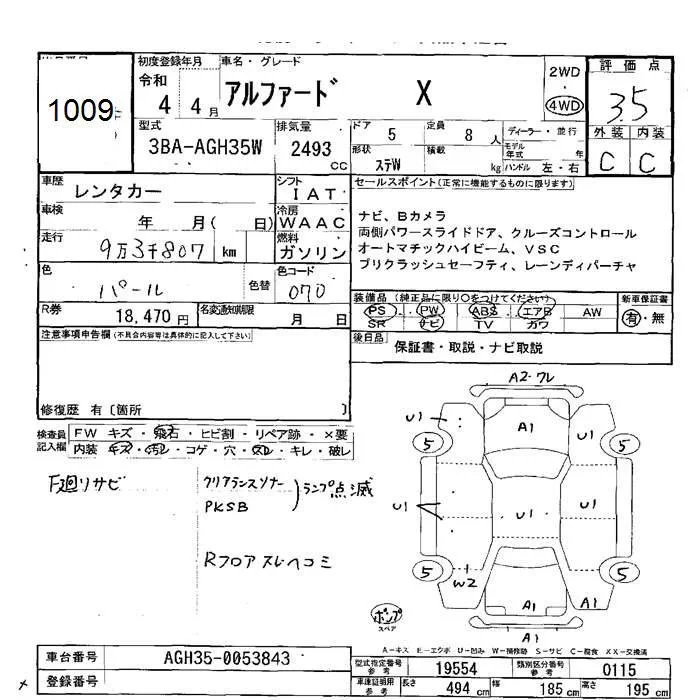 1009
初度登録年月
令和
4 4月
車名・グレード
アルファード X
2WD
4WD
評価点
3.5
外装 内装
C C
型式
3BA-AGH35W
排気量
2493
CC
ドア
5
定員
8 人
ディーラー・並行
モデル
年式 年
形状
ステW
積載
kg
ハンドル 左・右
車歴
レンタカー
シフト
IAT
セールスポイント(正常に機能するものに限ります)
車検
年 月( 日)
冷房
WAAC
ナビ、Bカメラ
両側パワースライドドア、クルーズコントロール
オートマチックハイビーム、VSC
プリクラッシュセーフティ、レーンディパーチャ
走行
9万3千807 km
燃料
ガソリン
色
パール
色替
色コード
070
R券
18,470 円
名変通知期限
月 日
装備品(純正品に限り○をつけてください)
PS・PW・ABS・エアB AW
SR ナビ TV カワ
新車保証書
有・無
後日品
保証書・取説・ナビ取説
注意事項申告欄(不具合内容等は具体的に記入して下さい)
修復歴 有〔箇所 〕
検査員
記入欄
FW キズ・飛石・ヒビ割・リペア跡・×要
内装 キズ・汚レ・コゲ・穴・スレ・キレ・破レ
F廻リサビ
クリアランスソナー
PKSB
ランプ点滅
Rフロアスレヘコミ
A2-ワレ
U1
A1
U1
5
5
U1
U1
U1
5
W2
5
A1
A1
A1
ポンプ
スペア
A-キズ E-エクボ U-凹み W-補修跡 S-サビ C-腐食 XX-交換済
車台番号
AGH35-0053843
登録番号
型式指定番号
参考
19554
類別区分番号
参考
0115
車庫証明用
参考
長さ
494 cm
幅
185 cm
高さ
195 cm